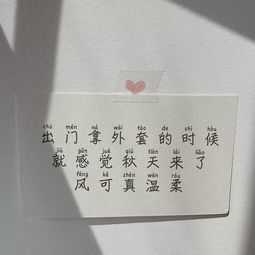 chū mén ná wài tào de shí hòu
出门拿外套的时候
jiù gǎn jué qiū tiān lái liǎo
就感觉秋天来了
fēng kě zhēn wēn róu
风可真温柔